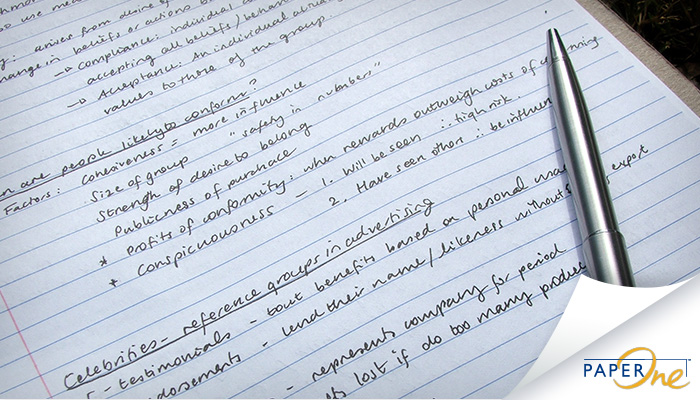 use me
: arises from desire of
change in beliefs or actions b
→ Compliance: individual co
accepting all beliefs/behav
→ Acceptance: An individual
values to those of the group
en are people likely to conform?
Factors: cohesiveness = more influence
Size of group "safety in numbers"
Strength of desire to belong
Publicness of purchace
* Profits of conformity: when rewards outweigh costs of
* Conspicuousness - 1. Will be seen ∴ high risk.
2. Have seen others ∴ be influen
Celebrities - reference groups in advertising
- testimonials - tout benefits based on personal
dorsements - lend their name/likeness without expert
- represents company for period
lost if do too many produc
PAPER One™